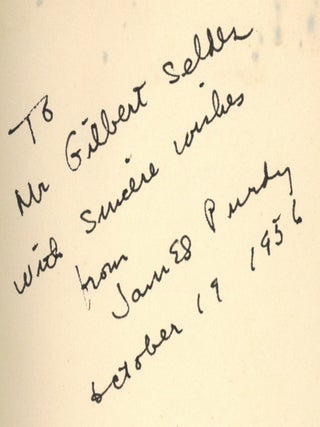 To
Mr Gilbert Seldes
with sincere wishes
from
James Purdy
October 19 1956